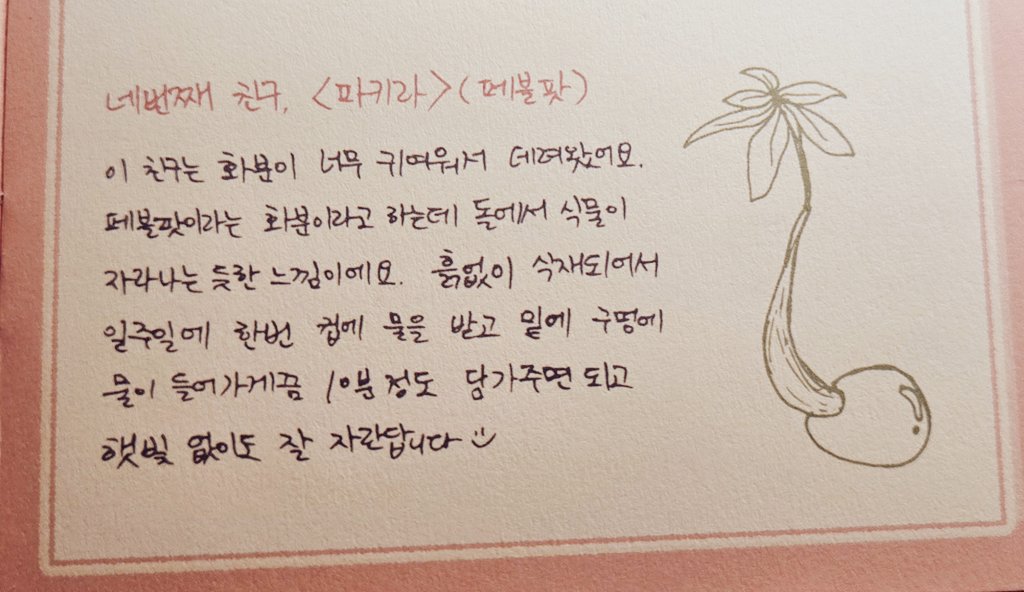 네번째 친구, <파키라>(페블팟)
이 친구는 화분이 너무 귀여워서 데려왔어요.
페블팟이라는 화분이라고 하는데 돌에서 식물이
자라나는 듯한 느낌이에요. 흙없이 식재되어서
일주일에 한번 컵에 물을 받고 밑에 구멍에
물이 들어가게끔 10분정도 담가주면 되고
햇빛 없이도 잘 자란답니다 :)